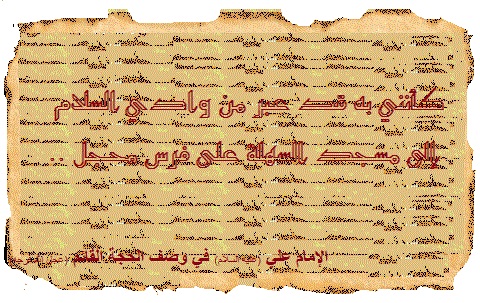 كأنني به قد عبر من وادي السلام
إلى مسجد السهلة على فرس محجل ..
الإمام علي (عليه السلام) في وصف الحجة القائم